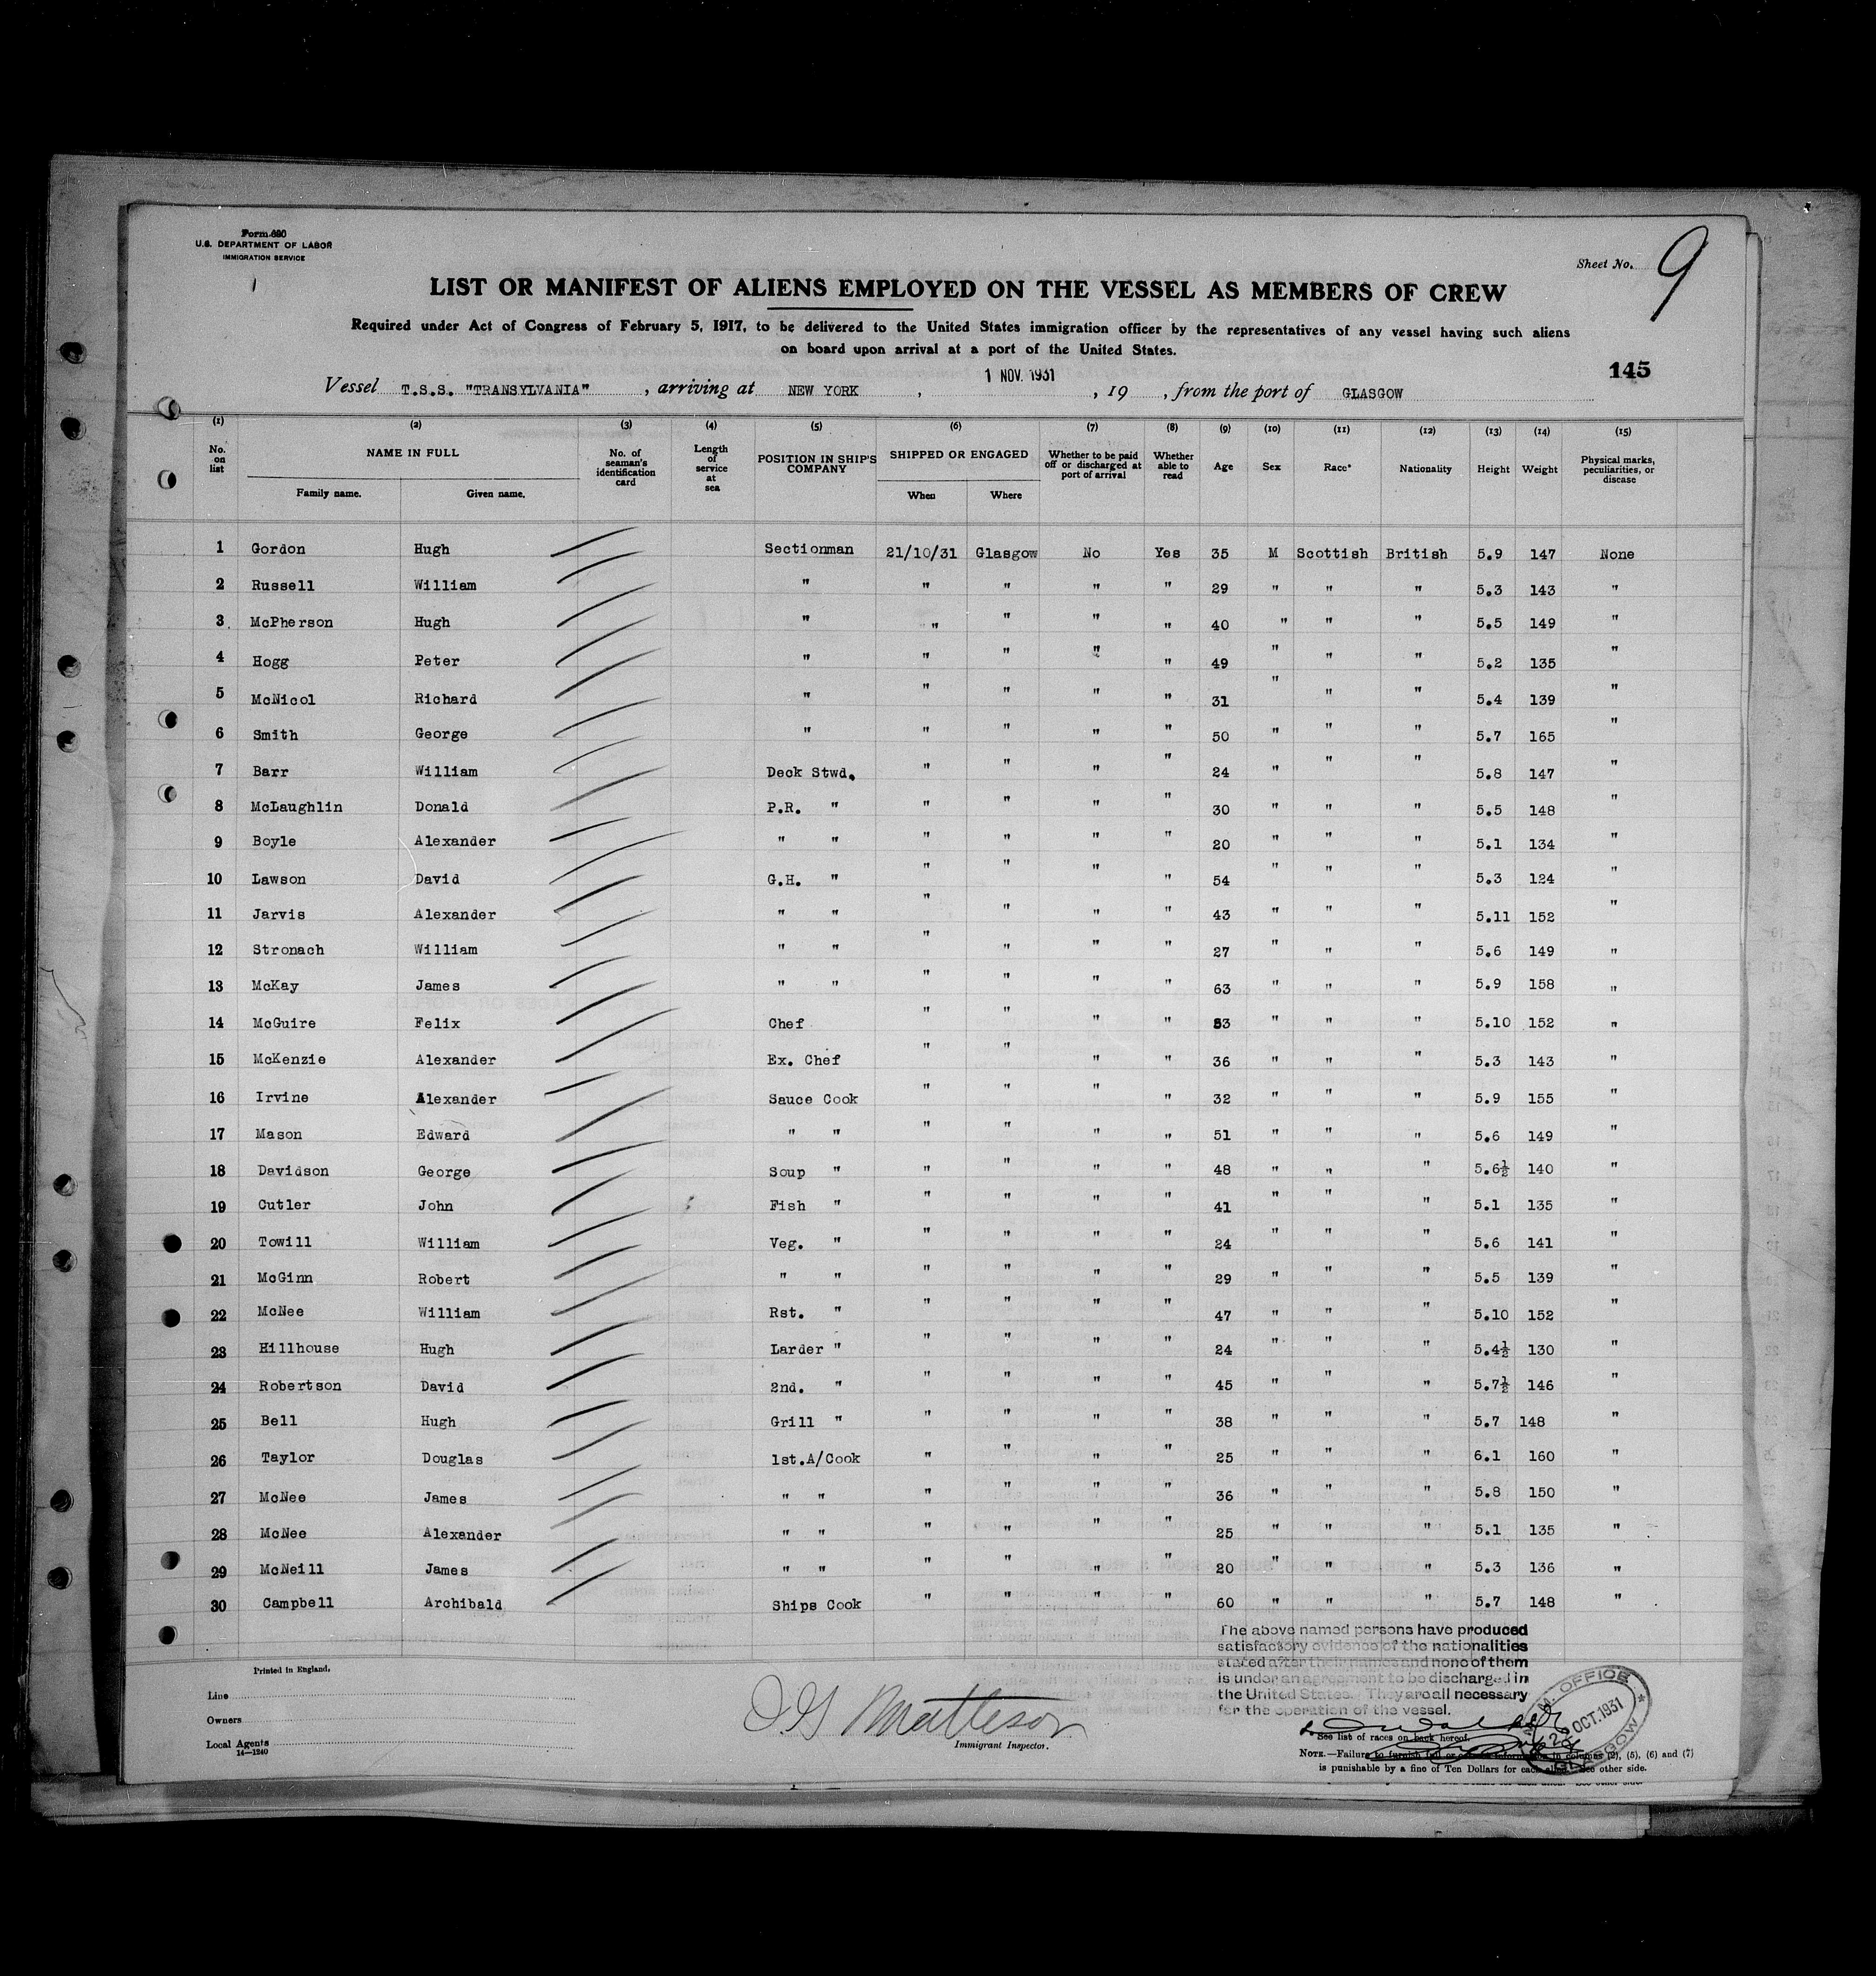 Form 680
U.S. DEPARTMENT OF LABOR
IMMIGRATION SERVICE
Sheet No. 9
LIST OR MANIFEST OF ALIENS EMPLOYED ON THE VESSEL AS MEMBERS OF CREW
Required under Act of Congress of February 5, 1917, to be delivered to the United States immigration officer by the representatives of any vessel having such aliens
on board upon arrival at a port of the United States.
145
Vessel T.S.S. "TRANSYLVANIA" , arriving at NEW YORK , 1 NOV. 1931 , 19 , from the port of GLASGOW
(1) (2) (3) (4) (5) (6) (7) (8) (9) (10) (11) (12) (13) (14) (15)
No. on list NAME IN FULL Family name. Given name. No. of seaman's identification card Length of service at sea POSITION IN SHIP'S COMPANY SHIPPED OR ENGAGED When Where Whether to be paid off or discharged at port of arrival Whether able to read Age Sex Race* Nationality Height Weight Physical marks, peculiarities, or disease
1 Gordon Hugh Sectionman 21/10/31 Glasgow No Yes 35 M Scottish British 5.9 147 None
2 Russell William " " " " " 29 " " " 5.3 143 "
3 McPherson Hugh " " " " " 40 " " " 5.5 149 "
4 Hogg Peter " " " " " 49 " " " 5.2 135 "
5 McNicol Richard " " " " " 31 " " " 5.4 139 "
6 Smith George " " " " " 50 " " " 5.7 165 "
7 Barr William Deck Stwd. " " " " 24 " " " 5.8 147 "
8 McLaughlin Donald P.R. " " " " " 30 " " " 5.5 148 "
9 Boyle Alexander " " " " " " 20 " " " 5.1 134 "
10 Lawson David G.H. " " " " " 54 " " " 5.3 124 "
11 Jarvis Alexander " " " " " " 43 " " " 5.11 152 "
12 Stronach William " " " " " " 27 " " " 5.6 149 "
13 McKay James " " " " " " 63 " " " 5.9 158 "
14 McGuire Felix Chef " " " " 53 " " " 5.10 152 "
15 McKenzie Alexander Ex. Chef " " " " 36 " " " 5.3 143 "
16 Irvine Alexander Sauce Cook " " " " 32 " " " 5.9 155 "
17 Mason Edward " " " " " " 51 " " " 5.6 149 "
18 Davidson George Soup " " " " " 48 " " " 5.6½ 140 "
19 Cutler John Fish " " " " " 41 " " " 5.1 135 "
20 Towill William Veg. " " " " " 24 " " " 5.6 141 "
21 McGinn Robert " " " " " " 29 " " " 5.5 139 "
22 McNee William Rst. " " " " " 47 " " " 5.10 152 "
23 Hillhouse Hugh Larder " " " " " 24 " " " 5.4½ 130 "
24 Robertson David 2nd. " " " " " 45 " " " 5.7½ 146 "
25 Bell Hugh Grill " " " " " 38 " " " 5.7 148 "
26 Taylor Douglas 1st.A/Cook " " " " 25 " " " 6.1 160 "
27 McNee James " " " " " " 36 " " " 5.8 150 "
28 McNee Alexander " " " " " " 25 " " " 5.1 135 "
29 McNeill James " " " " " " 20 " " " 5.3 136 "
30 Campbell Archibald Ships Cook " " " " 60 " " " 5.7 148 "
The above named persons have produced
satisfactory evidence of the nationalities
stated after their names and none of them
is under an agreement to be discharged in
the United States. They are all necessary
for the operation of the vessel.
Printed in England.
Line
Owners
Local Agents
14—1240
Matteson
Immigrant Inspector.
M. M. OFFICE
OCT.1931
GLASGOW
*See list of races on back hereof.
NOTE.—Failure to furnish full or correct information in columns (2), (5), (6) and (7)
is punishable by a fine of Ten Dollars for each alien. See other side.